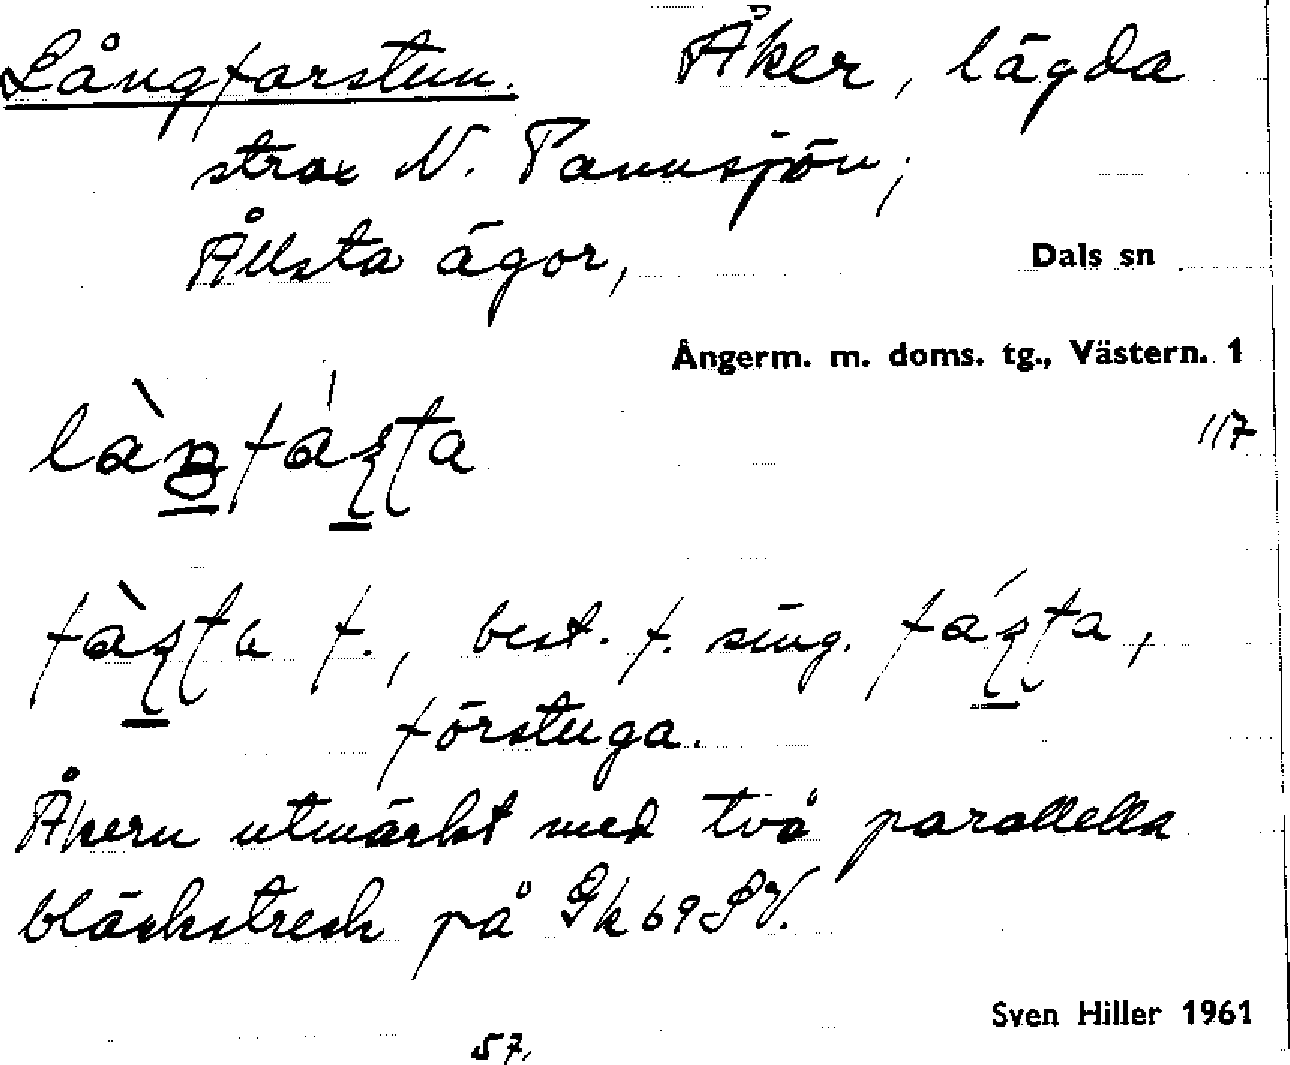 Långfarstun. Åker, lägda
strax N. Pannsjön,
Ållsta ägor, Dals sn
Ångerm. m. doms. tg., Västern. 1
117
best. f. sing.
förstuga.
Åkern utmärkt med två parallella
bläckstreck på Gk 69 SV.
Sven Hiller 1961
57.